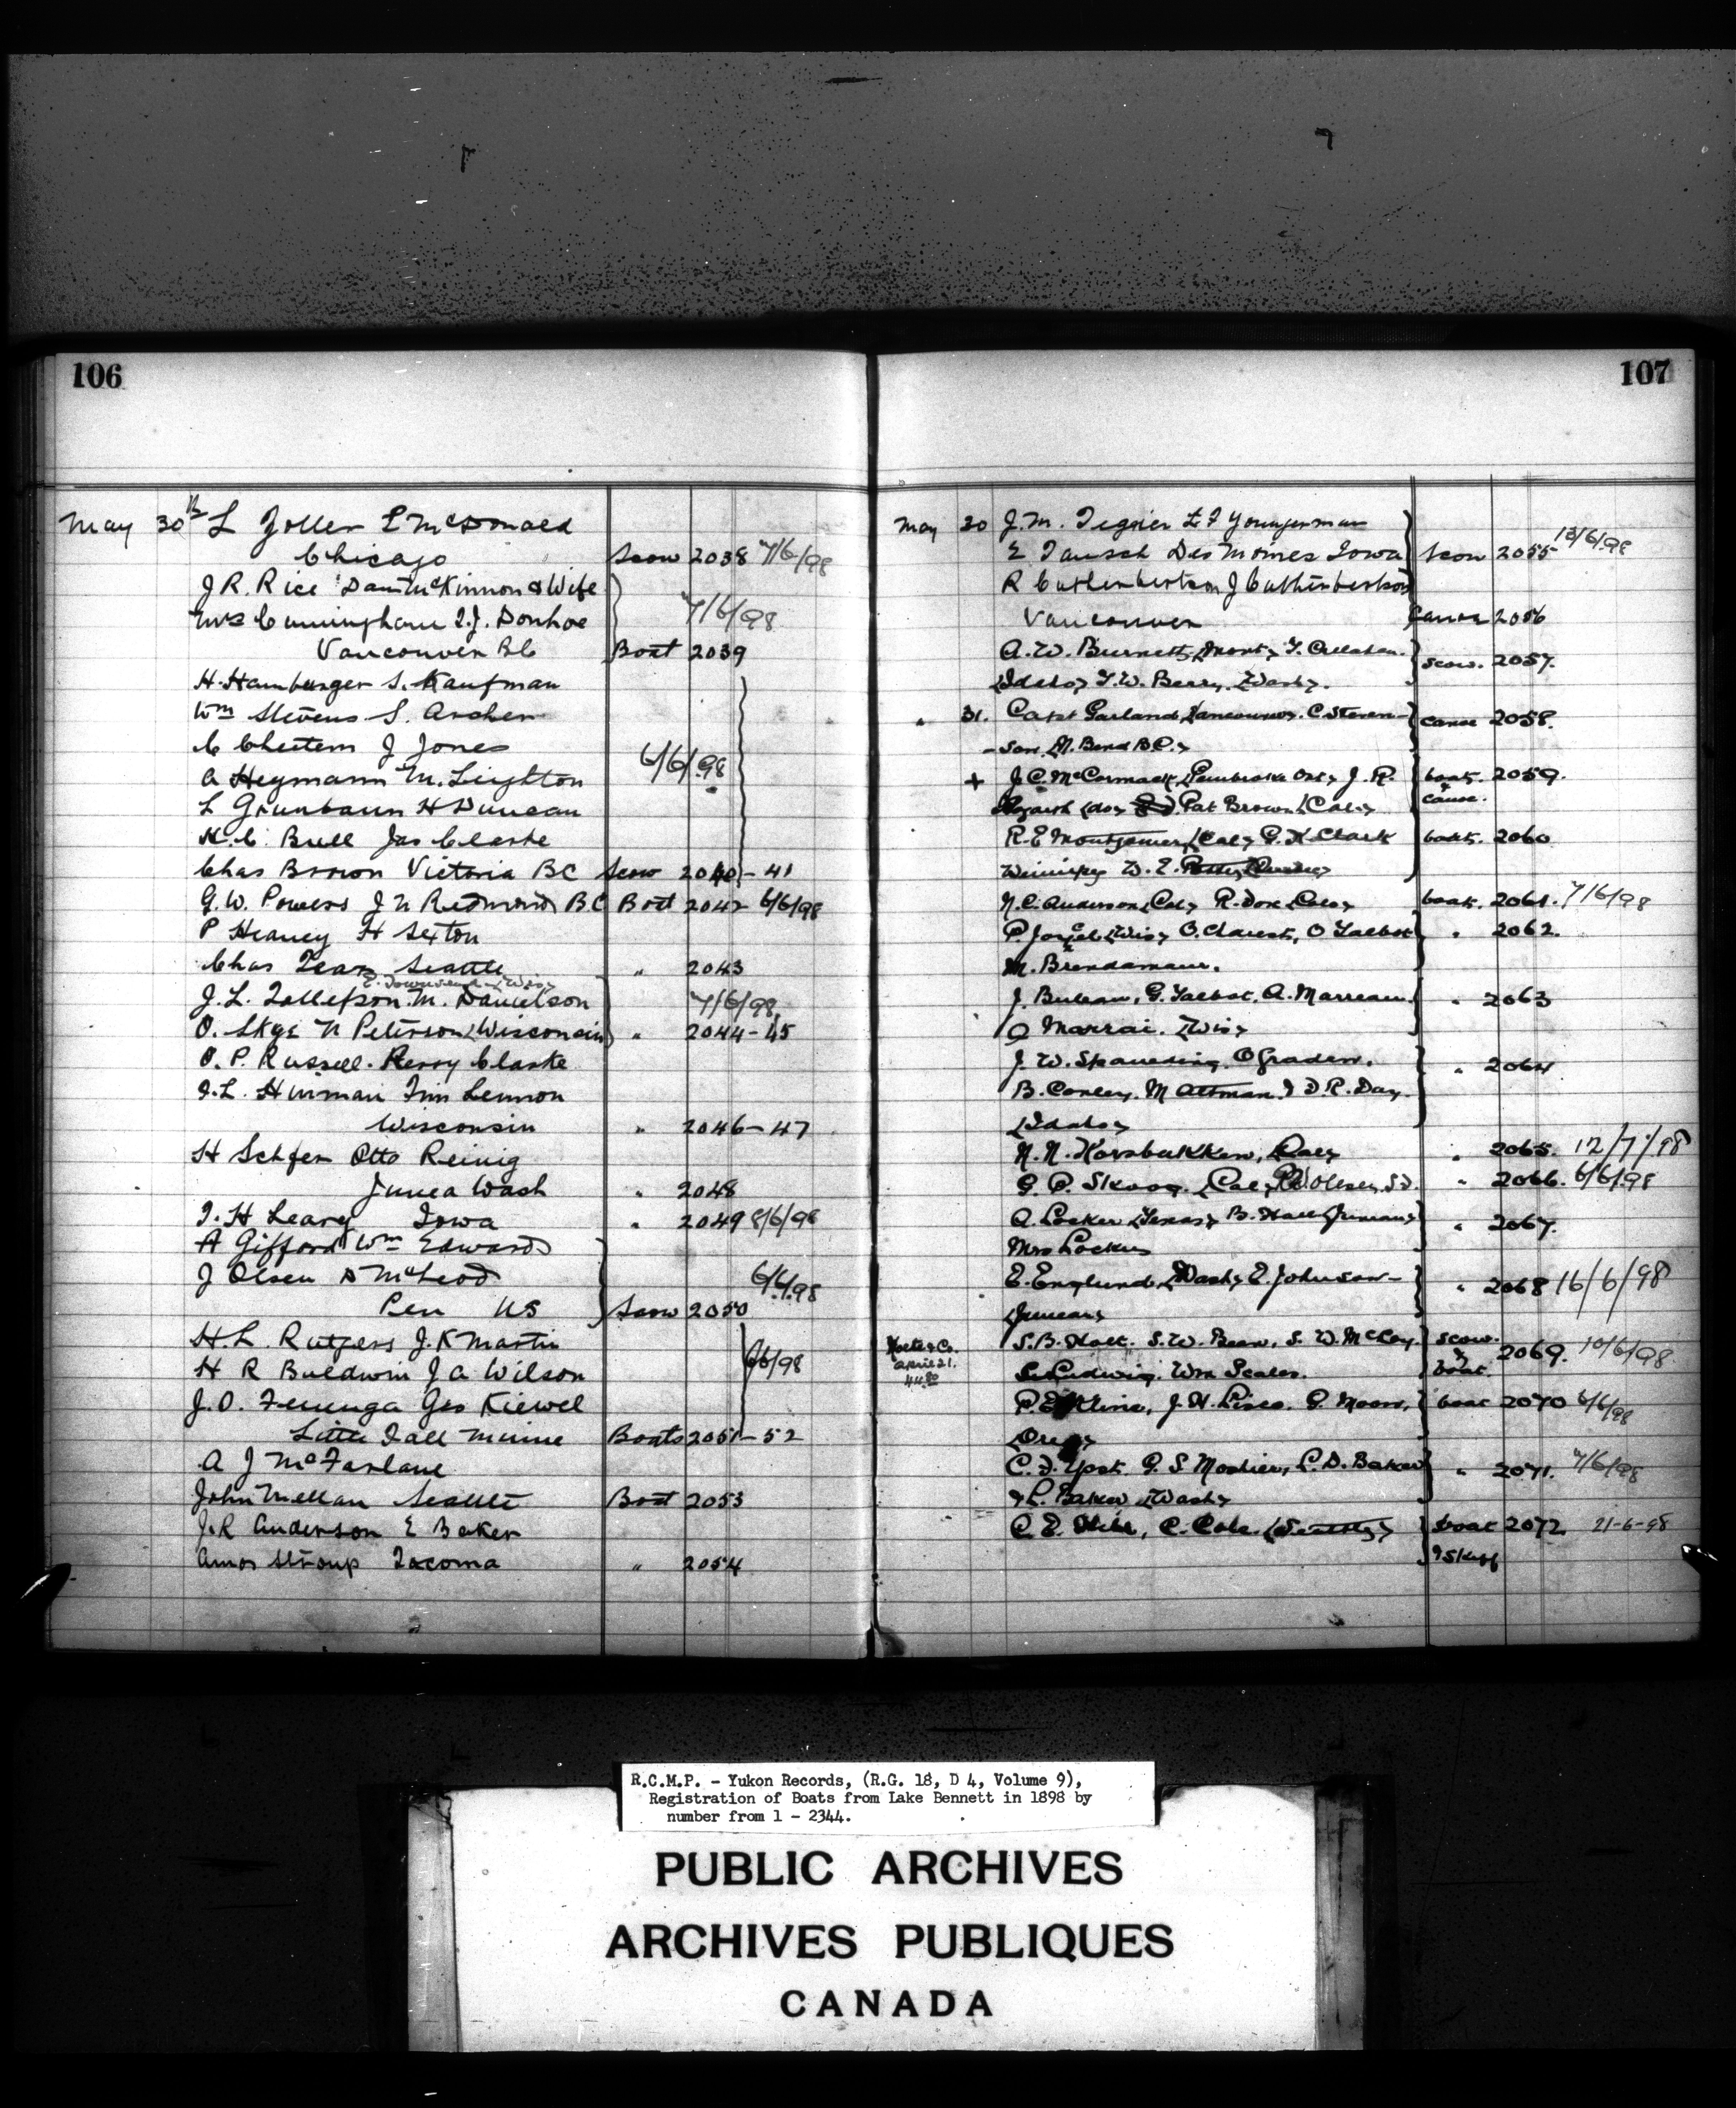 106
May 30th L Zoller L McDonald
Chicago Scow 2038 7/6/98
J R. Rice Dan McKinnon & Wife
Mrs Cunningham T.J. Donhoe 7/6/98
Vancouver BC Boat 2039
H. Hamburger S. Kaufman
Wm Stevens S. Archer
C Cheetem J Jones
A Heymann M. Leighton 6/6/98
L Grunbaum H Duncan
H.C. Bull Jas Clarke
Chas Brown Victoria BC Scow 2040-41
G.W. Powers J N Redmond BC Boat 2042 6/6/98
P Heaney H Sexton
Chas Tear Seattle " 2043
E. Townsend (Wis)
J. L. Tollefson. M. Danielson 7/6/98
O. Skge N Peterson (Wisconsin) " 2044-45
O. P. Russell. Perry Clarke
I. L. Hinman Tim Lennon
Wisconsin " 2046-47
H Schfer Otto Reinig
Wash " 2048
I. H Leary Iowa " 2049 8/6/98
A Gifford Wm Edwards
J Olsen D McLeod 6/6/98
Pen US Scow 2050
H. L. Rutgers J. K Martin
H R Baldwin J A Wilson 6/6/98
J. O. Fenenga Geo Kiewel
Little Fall Minne Boats 2051-52
A J McFarlane
John Mellan Seattle Boat 2053
J. R Anderson E Baker
Amos Stroup Tacoma " 2054
107
May 30 J. M. Tegnier L F Youngerman
E Tausch Des Moines Iowa Scow 2055 13/6/98
R Cuthenbertson J Cuthenbertson
Vancouver Canoe 2056
A. W. Burnett (Mont) T. Callahan.
(Idaho) T. W. Berry. (Wash). scow. 2057.
" 31. Capt Garland (Vancouver). C Steven- canoe 2058.
-son (N. Bend B.C.)
+ J. C. McCormack (Pembroke Ont) J. R. boat & 2059.
(do) Pat Brown (Cal) canoe.
R. E Montgomery (Cal) G. H Clark boat. 2060
Winnipeg W. E.
N. C. Anderson (Cal) R. Dox (Colo) boat. 2061. 7/6/98
O. Talbot " 2062.
M. Brendamaur.
J. Buleau, G. Talbot, A. Marreau. " 2063
Marrai. (Wis)
J. W. Spaulding. O Graden.
B. Conley. M Altman. & D. R. Day. " 2064
(Idaho)
N. N. Korsbukken, (Cal) " 2065. 12/7/98
G. P. Skoog. (Cal) P. W. Olesen S.D. " 2066. 6/6/98
A. Locker (Texas) B. Hall (Juneau) " 2067.
Mrs Locker
E. Englund (Wash) E. Johnson- " 2068 16/6/98
(Juneau)
April 21. S. B. Holt. S. W. Bean, S. W. McCoy. scow. & 2069. 10/6/98
Ludwig. Wm Scales. boat.
P. E Kline, J. H. Lisco. G. Moore, boat 2070 6/6/98
(Oreg)
C. F. Yost. P. S. Moshier, L. D. Baker " 2071. 7/6/98
& L. Baker (Wash)
C. E. Hill, C. Cole. (Seattle) boat 2072. 21-6-98
& Skiff
R.C.M.P. - Yukon Records, (R.G. 18, D 4, Volume 9),
Registration of Boats from Lake Bennett in 1898 by
number from 1 - 2344.
PUBLIC ARCHIVES
ARCHIVES PUBLIQUES
CANADA